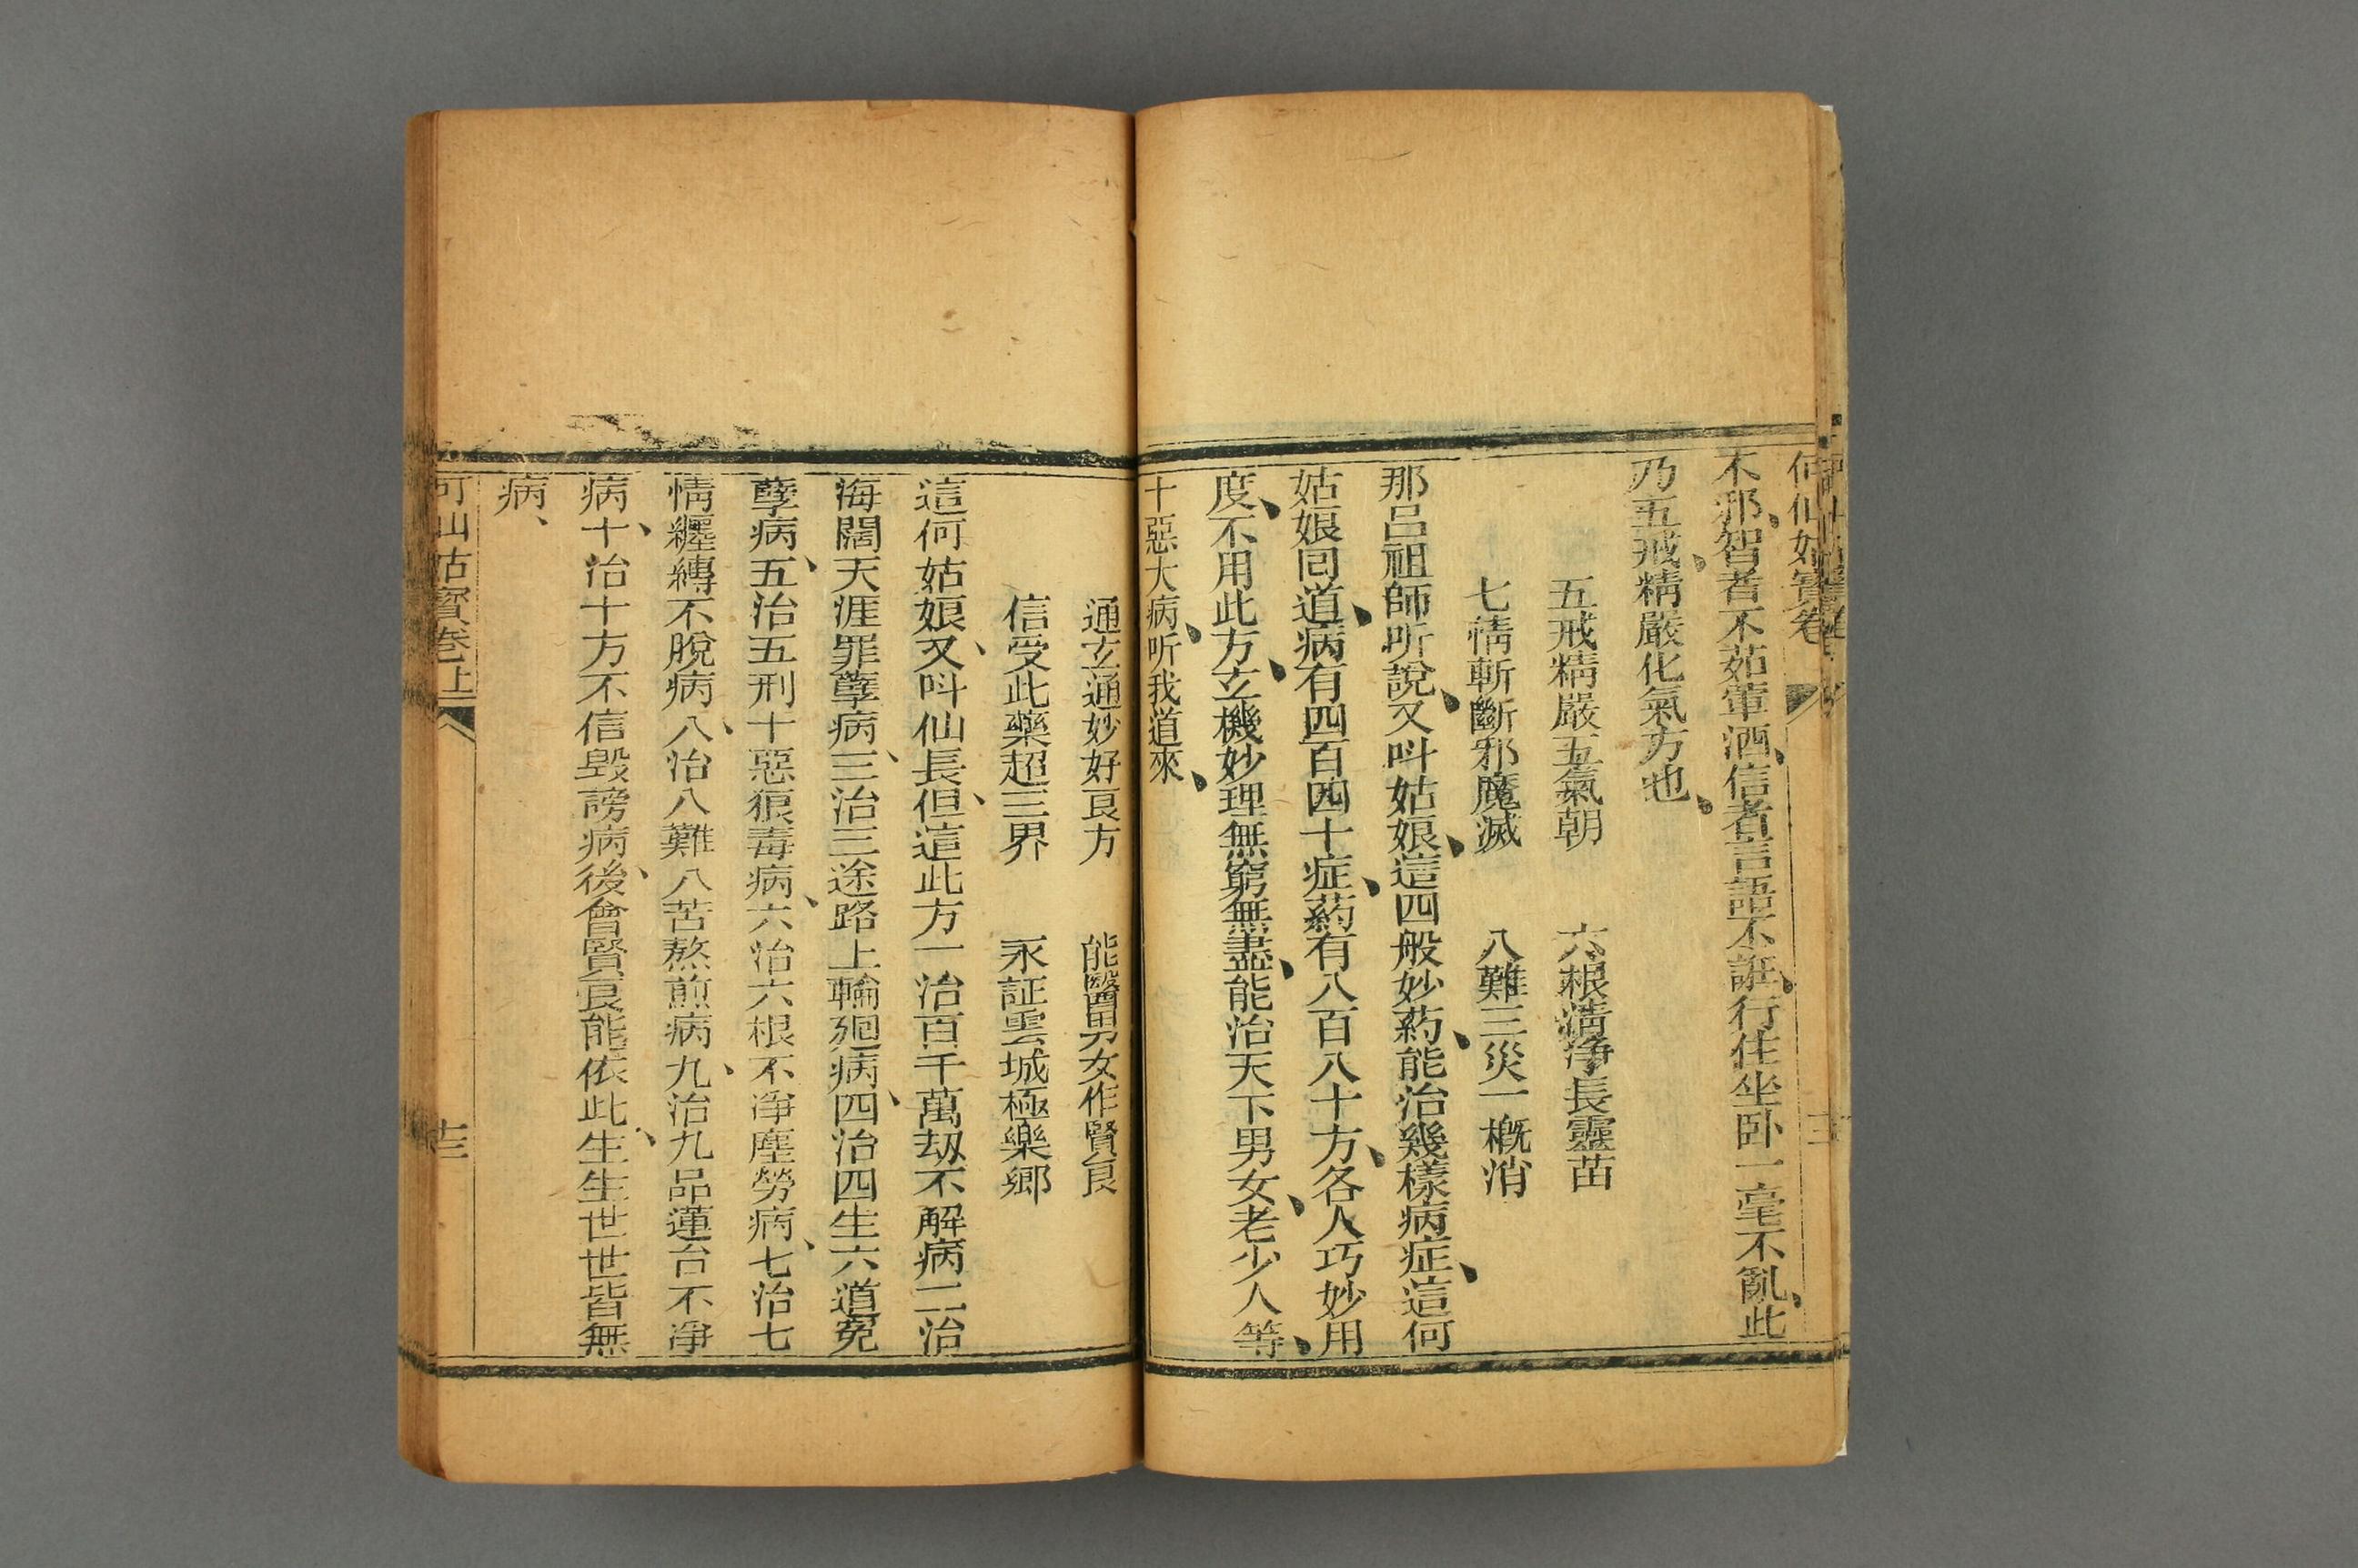 何仙姑寳卷
不邪、智者不茹葷酒、信者言語不誑、行住坐卧一毫不亂、此
乃五戒、精嚴化氣方也、
五戒精嚴五氣朝　六根淸淨長靈苗
七情斬斷邪魔滅　八難三災一概消
那吕祖師听說、又呌姑娘、這四般妙葯、能治幾樣病症、這何
姑娘囘道、病有四百四十症、葯有八百八十方、各人巧妙用
度、不用此方、玄機妙理無窮無盡、能治天下男女、老少人等、
十惡大病、听我道來、
通玄通妙好良方　能醫男女作賢良
信受此藥超三界　永証雲城極樂鄉
這何姑娘、又呌仙長、但這此方一治百千萬刼不解病二治
海闊天涯罪孽病、三治三途路上輪廻病、四治四生六道冤
孽病、五治五刑十惡狠毒病、六治六根不淨塵勞病、七治七
情纒縛不脫病、八治八難八苦熬煎病、九治九品蓮台不淨
病、十治十方不信毁謗病、後會賢良能依此、生生世世皆無
病、
何仙姑寳卷上
十三